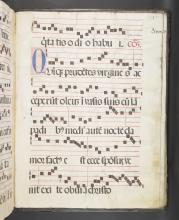 tatio o di o habu i.
Quīqz prudētes virgine s ac
ceperūt oleū ī vasis suis cū lā
padi b⁹ medi a autē nocte cla
mor fact⁹ e st ecce spōsus ve
nit exi te obuiā christo